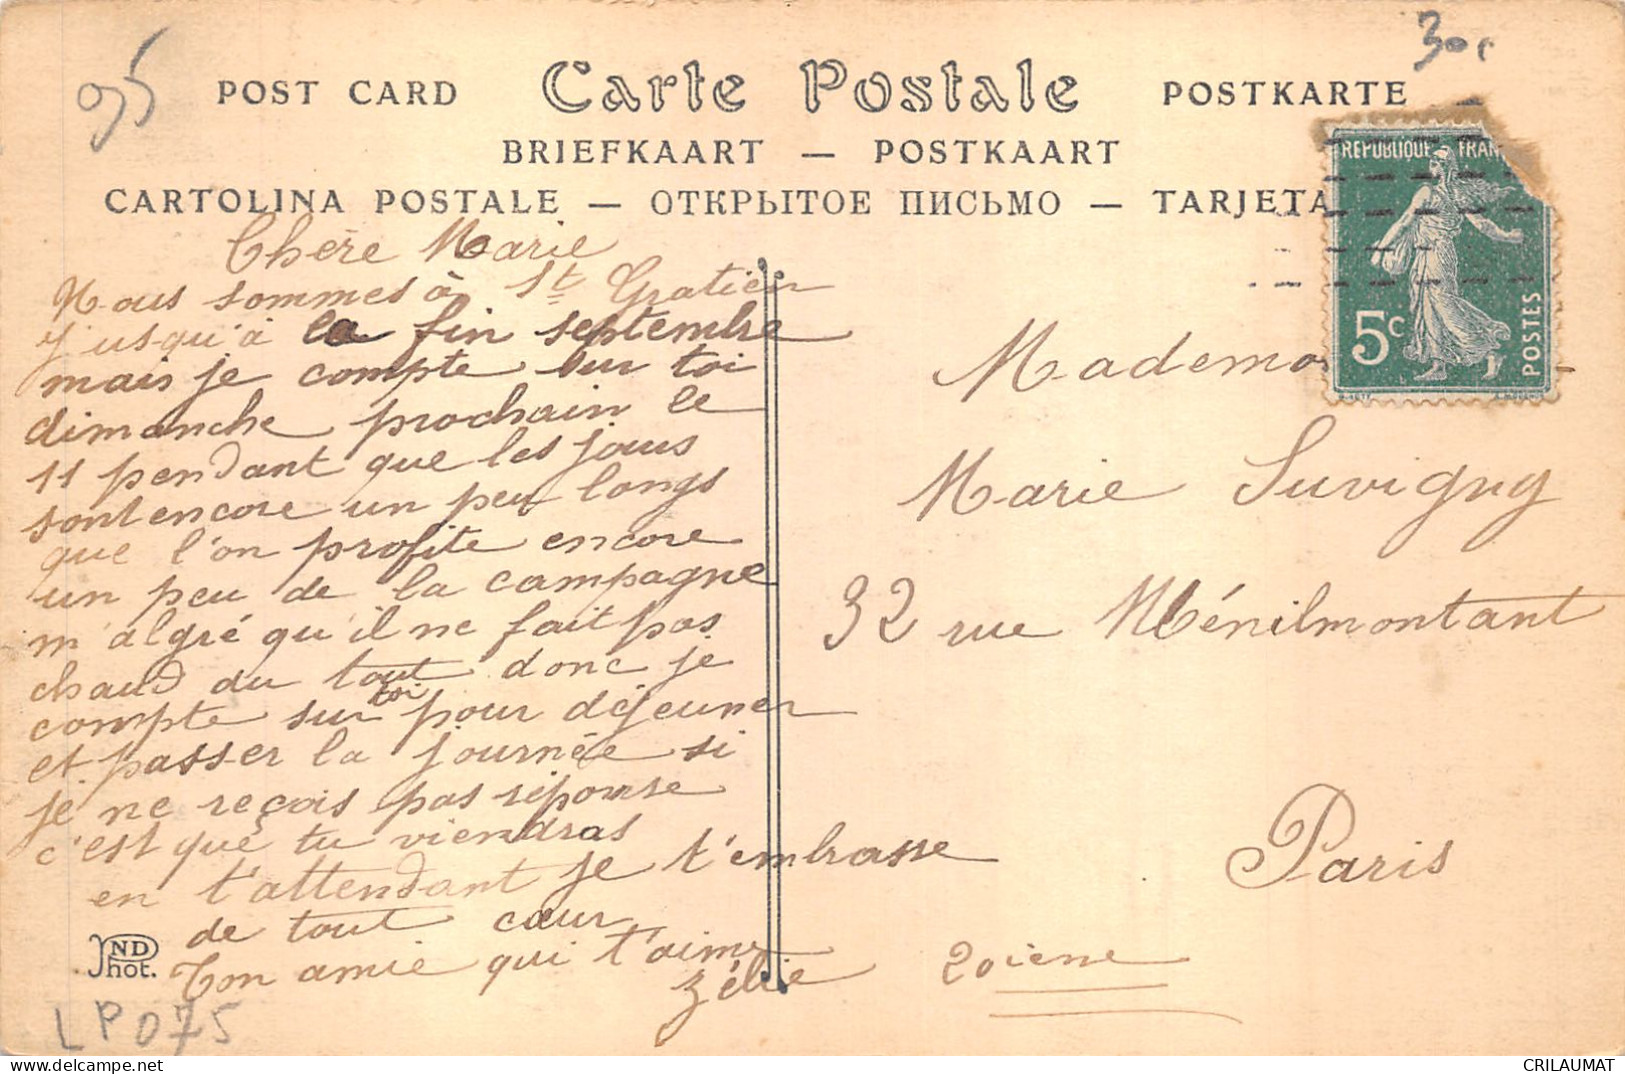 95
30c
POST CARD Carte Postale POSTKARTE
BRIEFKAART — POSTKAART
CARTOLINA POSTALE — ОТКРЫТОЕ ПИСЬМО — TARJETA
REPUBLIQUE FRAN
5c
POSTES
Chère Marie
Nous sommes à St Gratien
jusqu'à la fin septembre
mais je compte sur toi
dimanche prochain le
11 pendant que les jours
sont encore un peu longs
que l'on profite encore
un peu de la campagne
m'algré qu'il ne fait pas
chaud du tout donc je
compte sur toi pour déjeuner
et passer la journée si
je ne reçois pas réponse
c'est que tu viendras
en t'attendant je t'embrasse
de tout cœur
Ton amie qui t'aime
Zélie
ND
Phot.
LP075
Mademo
Marie Suvigny
32 rue Ménilmontant
Paris
20ième
CRILAUMAT